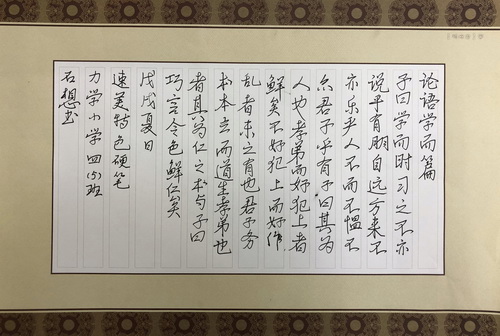 论语学而篇
子曰学而时习之不亦
说乎有朋自远方来不
亦乐乎人不而不愠不
亦君子乎有子曰其为
人也孝弟而好犯上者
鲜矣不好犯上而好作
乱者未之有也君子务
本本立而道生孝弟也
者其为仁之本与子曰
巧言令色鲜仁矣
戊戌夏日
速美特色硬笔
力学小学四(5)班
石想书